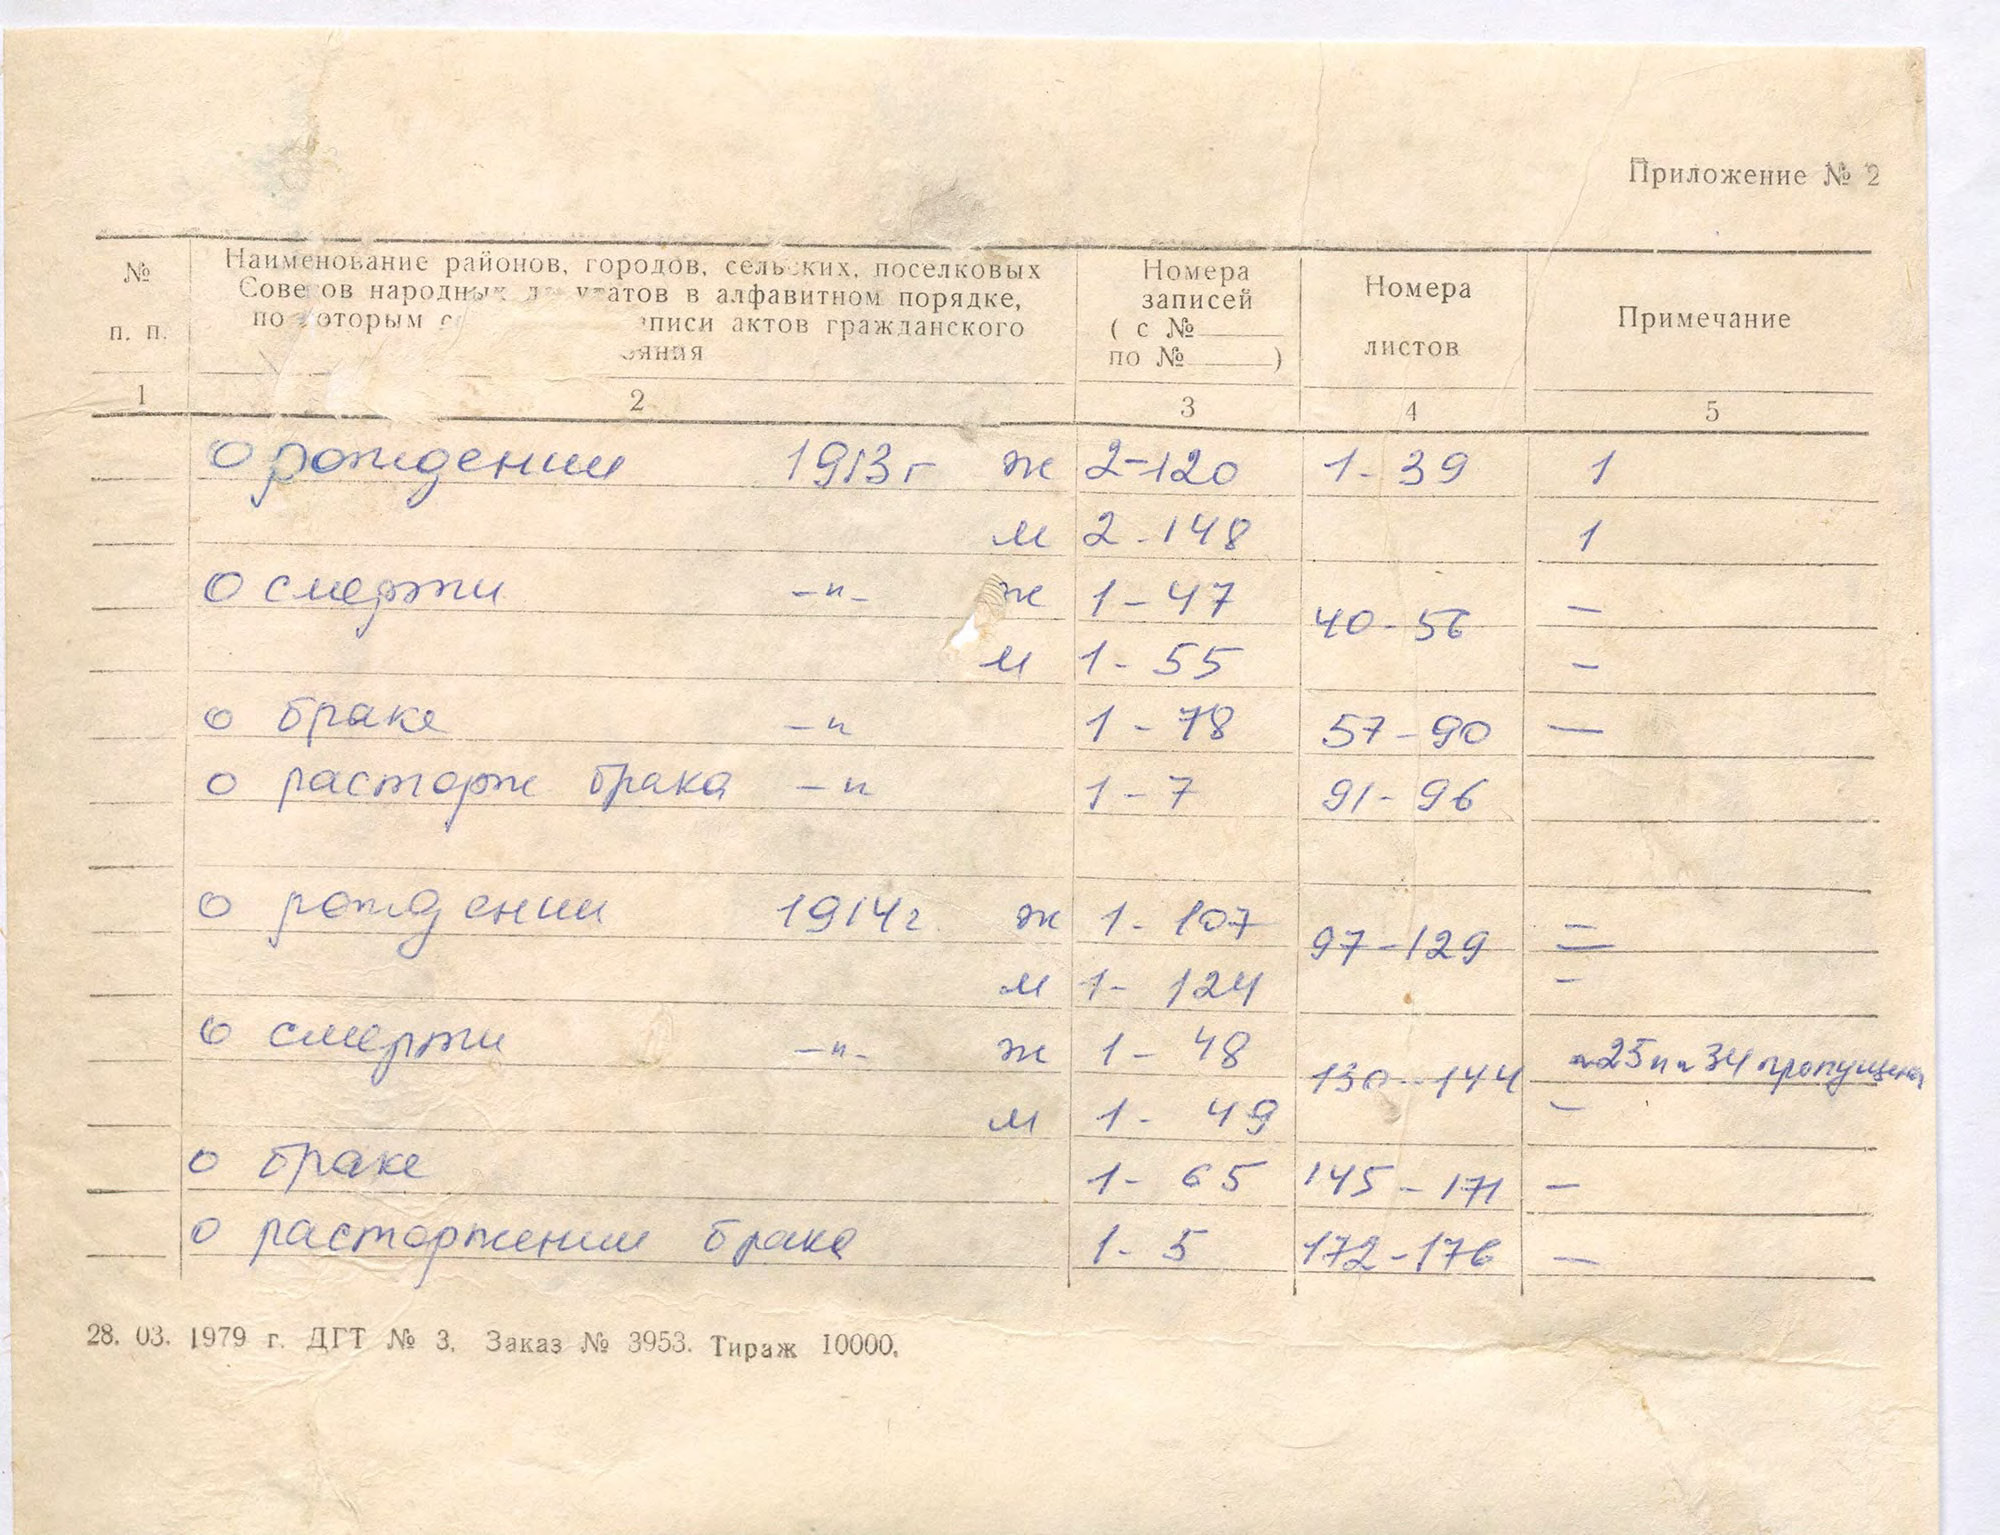 Приложение № 2
№ п. п.
Наименование районов, городов, сельских, поселковых
Советов народных депутатов в алфавитном порядке,
по которым записи актов гражданского
Номера
записей
( с №
по № )
Номера
листов
Примечание
1 2 3 4 5
о рождении 1913 г ж 2-120 1-39 1
м 2-148 1
о смерти -"- ж 1-47 40-56 -
м 1-55 -
о браке -" 1-78 57-90 -
о расторж брака -" 1-7 91-96
о рождении 1914 г. ж 1-107 97-129 =
м 1-124 -
о смерти -"- ж 1-48 130-144 25 и 34 пропущена
м 1-49 -
о браке 1-65 145-171 -
о расторжении брака 1-5 172-176 -
28. 03. 1979 г. ДГТ № 3. Заказ № 3953. Тираж 10000.